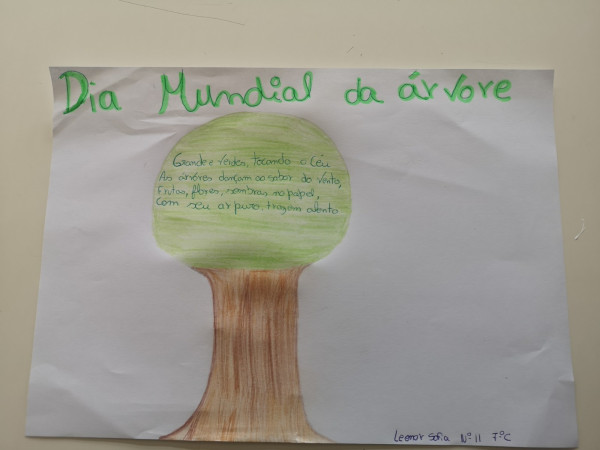 Dia Mundial da árvore
Grande e verdes, tocando o Céu
As árvores dançam ao sabor do vento,
Frutos, flores, sombras no papel,
com seu ar puro trazem alento
Leonor Sofia Nº 11 7ºC